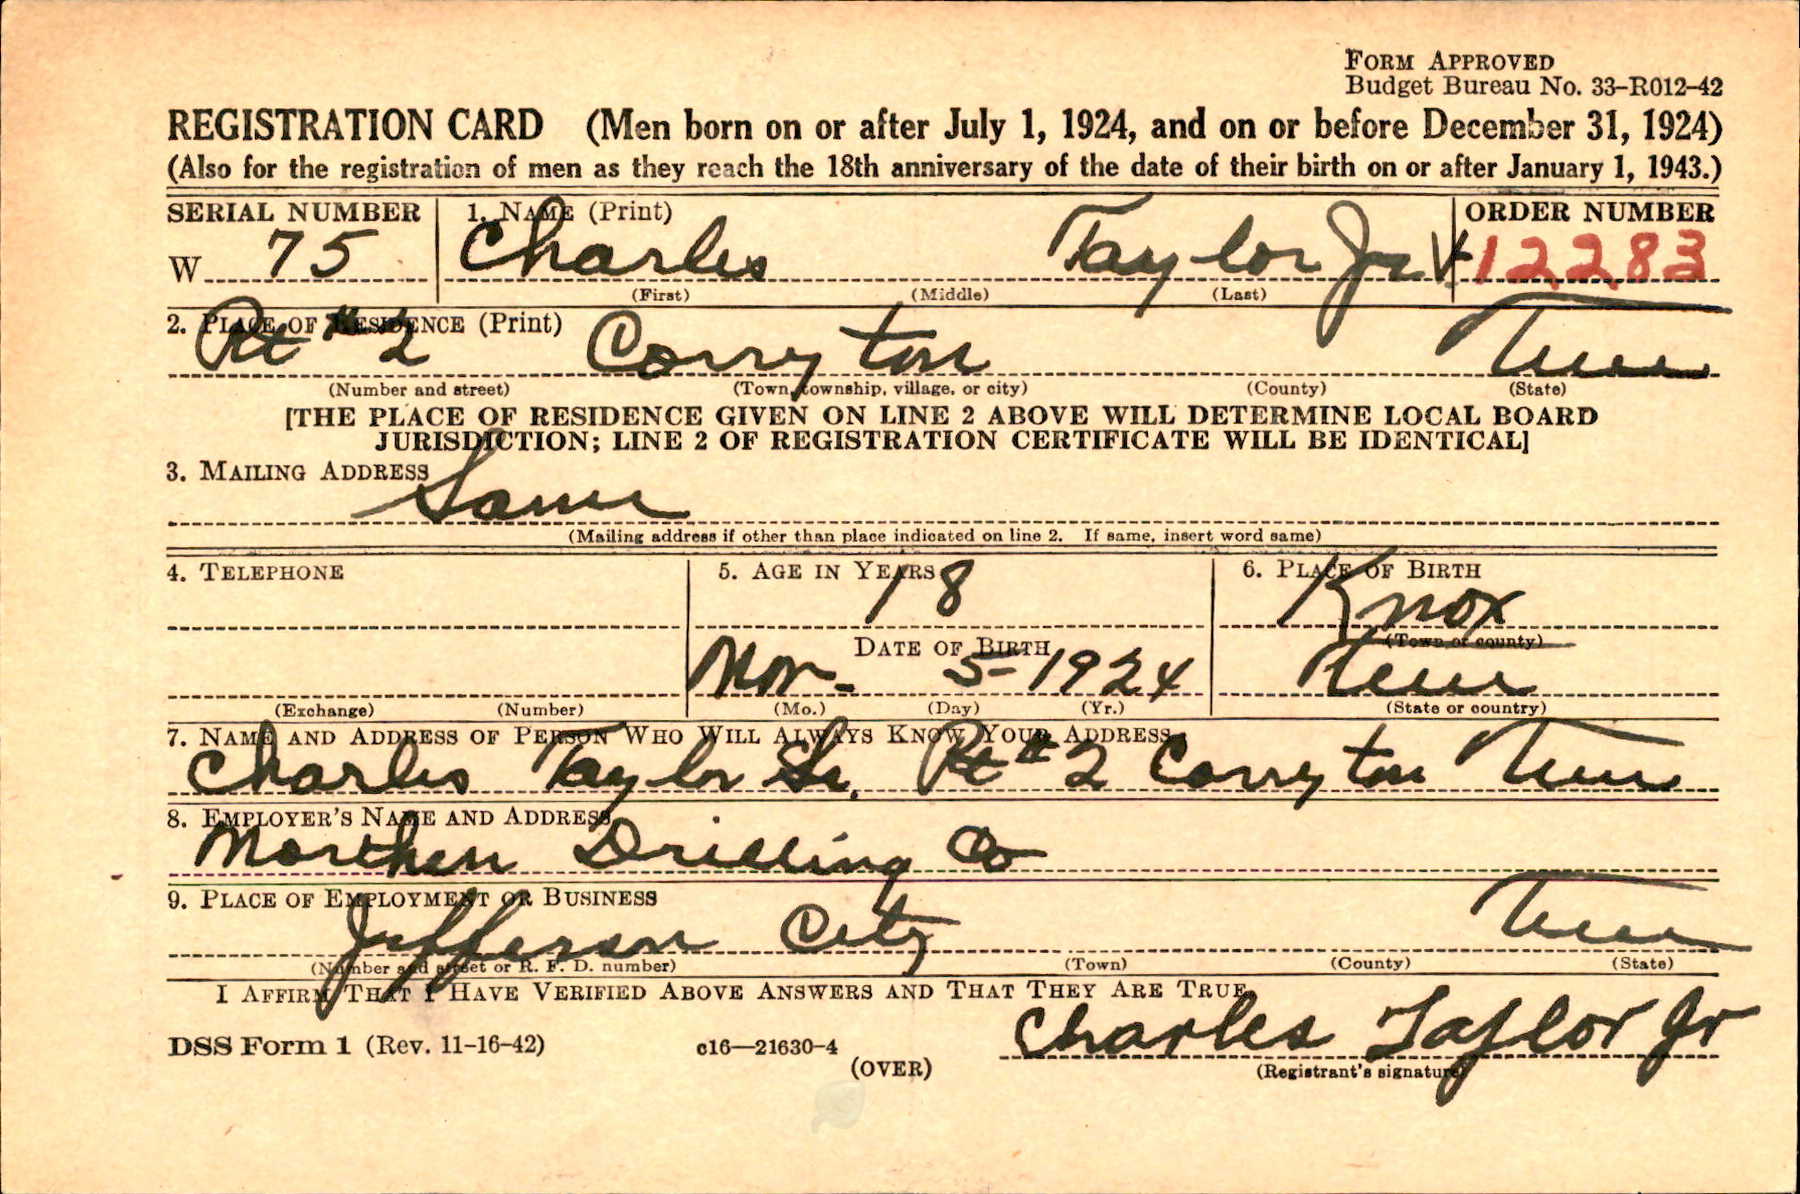 FORM APPROVED
Budget Bureau No. 33-R012-42
REGISTRATION CARD (Men born on or after July 1, 1924, and on or before December 31, 1924)
(Also for the registration of men as they reach the 18th anniversary of the date of their birth on or after January 1, 1943.)
SERIAL NUMBER 1. NAME (Print) ORDER NUMBER
W 75 Charles Taylor Jr 12283
(First) (Middle) (Last)
2. PLACE OF RESIDENCE (Print)
Rt #2 Corryton Tenn
(Number and street) (Town, township, village, or city) (County) (State)
[THE PLACE OF RESIDENCE GIVEN ON LINE 2 ABOVE WILL DETERMINE LOCAL BOARD
JURISDICTION; LINE 2 OF REGISTRATION CERTIFICATE WILL BE IDENTICAL]
3. MAILING ADDRESS
Same
(Mailing address if other than place indicated on line 2. If same, insert word same)
4. TELEPHONE 5. AGE IN YEARS 6. PLACE OF BIRTH
18 Knox
DATE OF BIRTH (Town or county)
Nov- 5- 1924 Tenn
(Exchange) (Number) (Mo.) (Day) (Yr.) (State or country)
7. NAME AND ADDRESS OF PERSON WHO WILL ALWAYS KNOW YOUR ADDRESS
Charles Taylor Sr. Rt #2 Corryton Tenn
8. EMPLOYER'S NAME AND ADDRESS
Drilling Co
9. PLACE OF EMPLOYMENT OR BUSINESS
Jefferson City Tenn
(Number and street or R. F. D. number) (Town) (County) (State)
I AFFIRM THAT I HAVE VERIFIED ABOVE ANSWERS AND THAT THEY ARE TRUE.
Charles Taylor Jr
DSS Form 1 (Rev. 11-16-42) c16—21630-4
(OVER) (Registrant's signature)